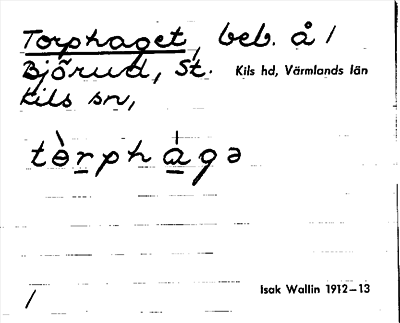 Torphaget, beb. å /
Björud, St. Kils hd, Värmlands län
Kils sn,
tɵ̀rphágə
Isak Wallin 1912–13
/